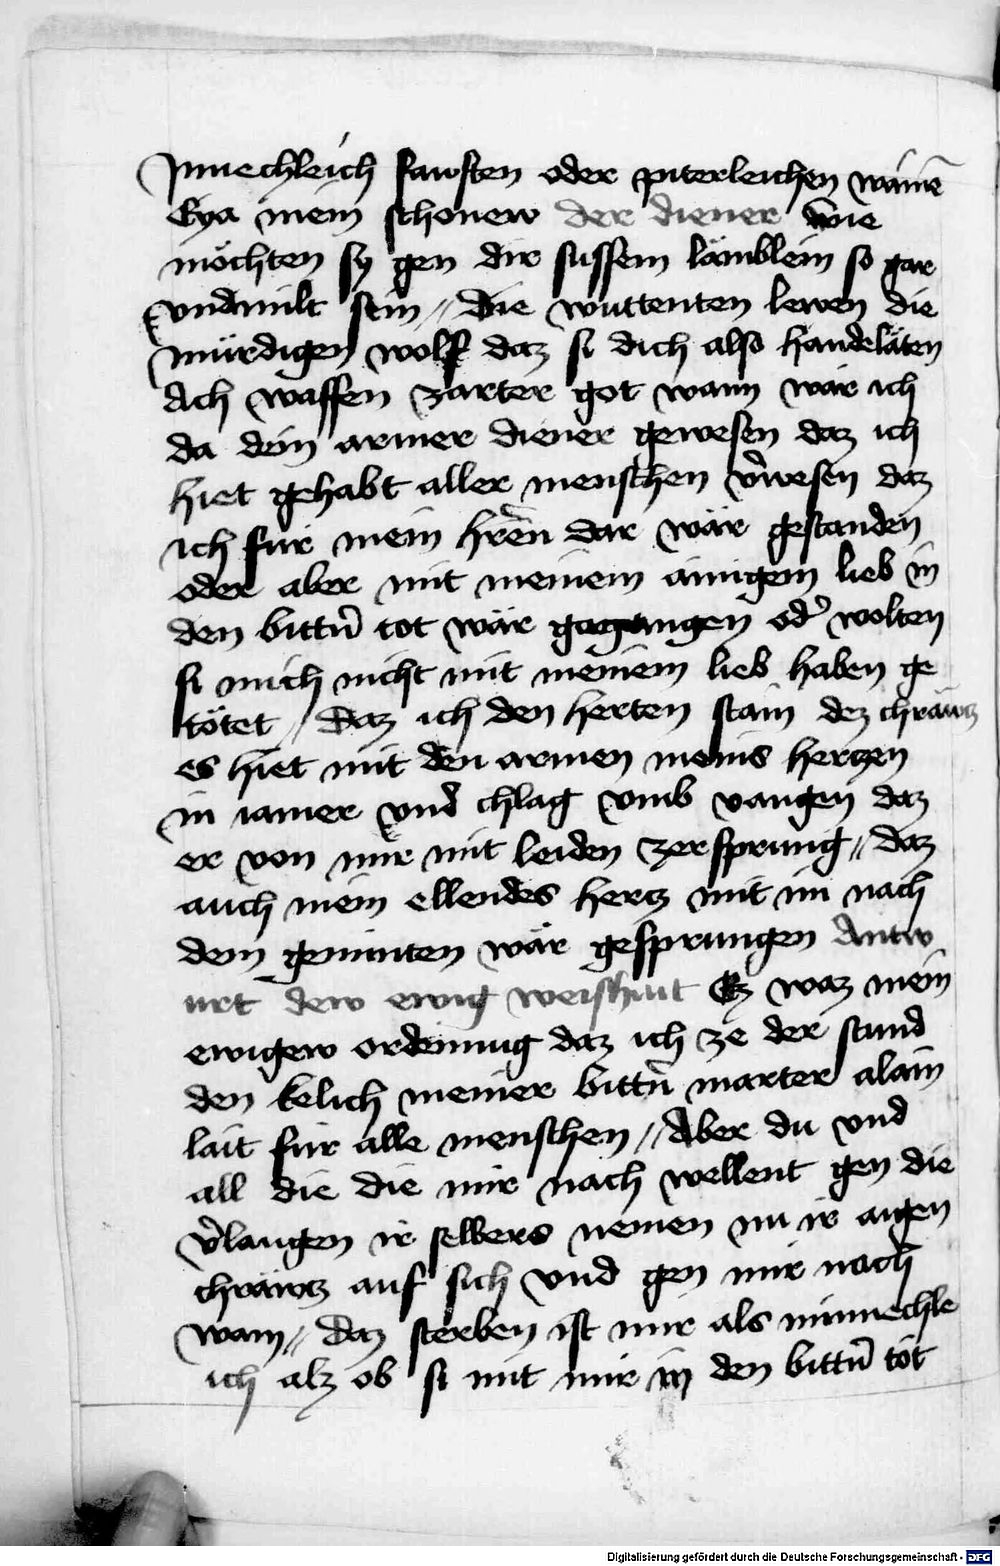 Jnnechleich sawften oder piterleichen wainē
Eya mein schonew der diener wie
möchten sy gen dir sussem lämblein so gar
vndmilt sein // die wuttenten lewen die
mürdigen wolff daz si dich also handeläten
Ach waffen zarter got wann wär ich
da dein armer diener gewesen daz ich
hiet gehabt aller menschen v̓wesen daz
ich für mein hren̄ dar wär gestanden
oder aber mit meinem ainigem lieb in
den bittn̄ tot wär gegangen od̓ wolten
si mich nicht mit meinem lieb haben ge
tötet // Daz ich den herten stain dez chräwtz
es hiet mit den armen meins hertzen
in iamer vnd chlag vmb vangen daz
er von mir mit leiden zersprung // daz
auch mein ellendes hertz mit im nach
dem geminten wär gesprungen Antw
urt dew ewig weishait Ez waz mein
ewigew ordenung daz ich ze der stund
den kelich meiner bittn̄ marter alain
lait für alle menschen // Aber du vnd
all die die mir nach wellent gen die
v̓langen ir selbers nemen nu ir aigen
chräwtz auf sich vnd gen mir nach
wann // daz sterben ist mir als minnechle
ich alz ob si mit mir in den bittn̄ tot
Digitalisierung gefördert durch die Deutsche Forschungsgemeinschaft - DFG